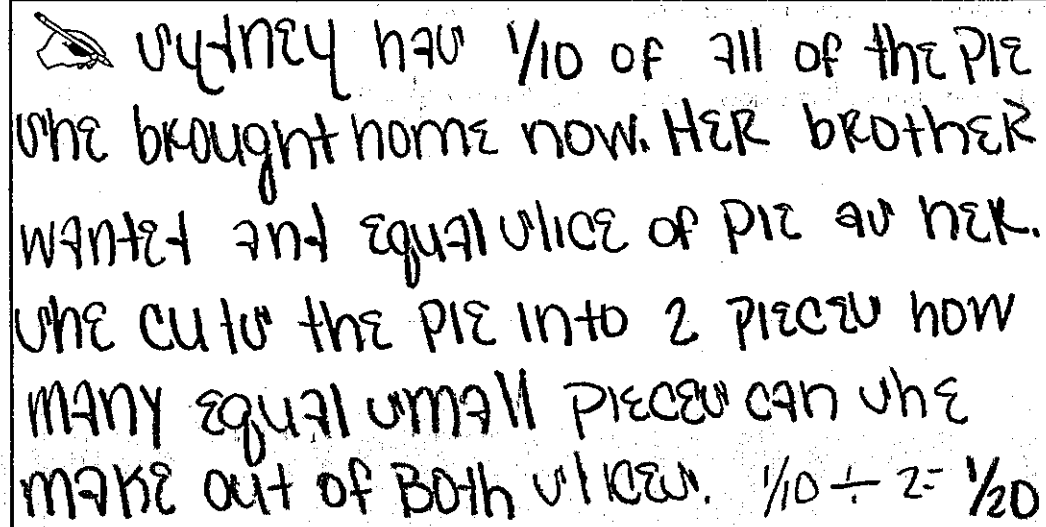 Sydney has 1/10 of all of the PIE
she brought home now. HER bROthER
wanted and Equal slice of PIE as hER.
She cuts the PIE Into 2 PIECES how
many Equal small PIECES can she
make out of Both slices. 1/10 ÷ 2 = 1/20